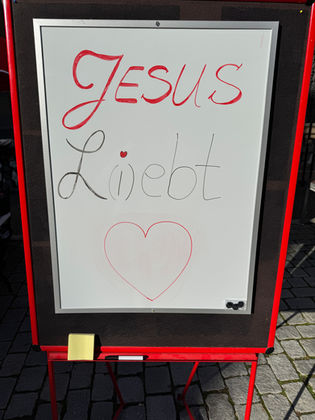 JESUS
L(i)ebt